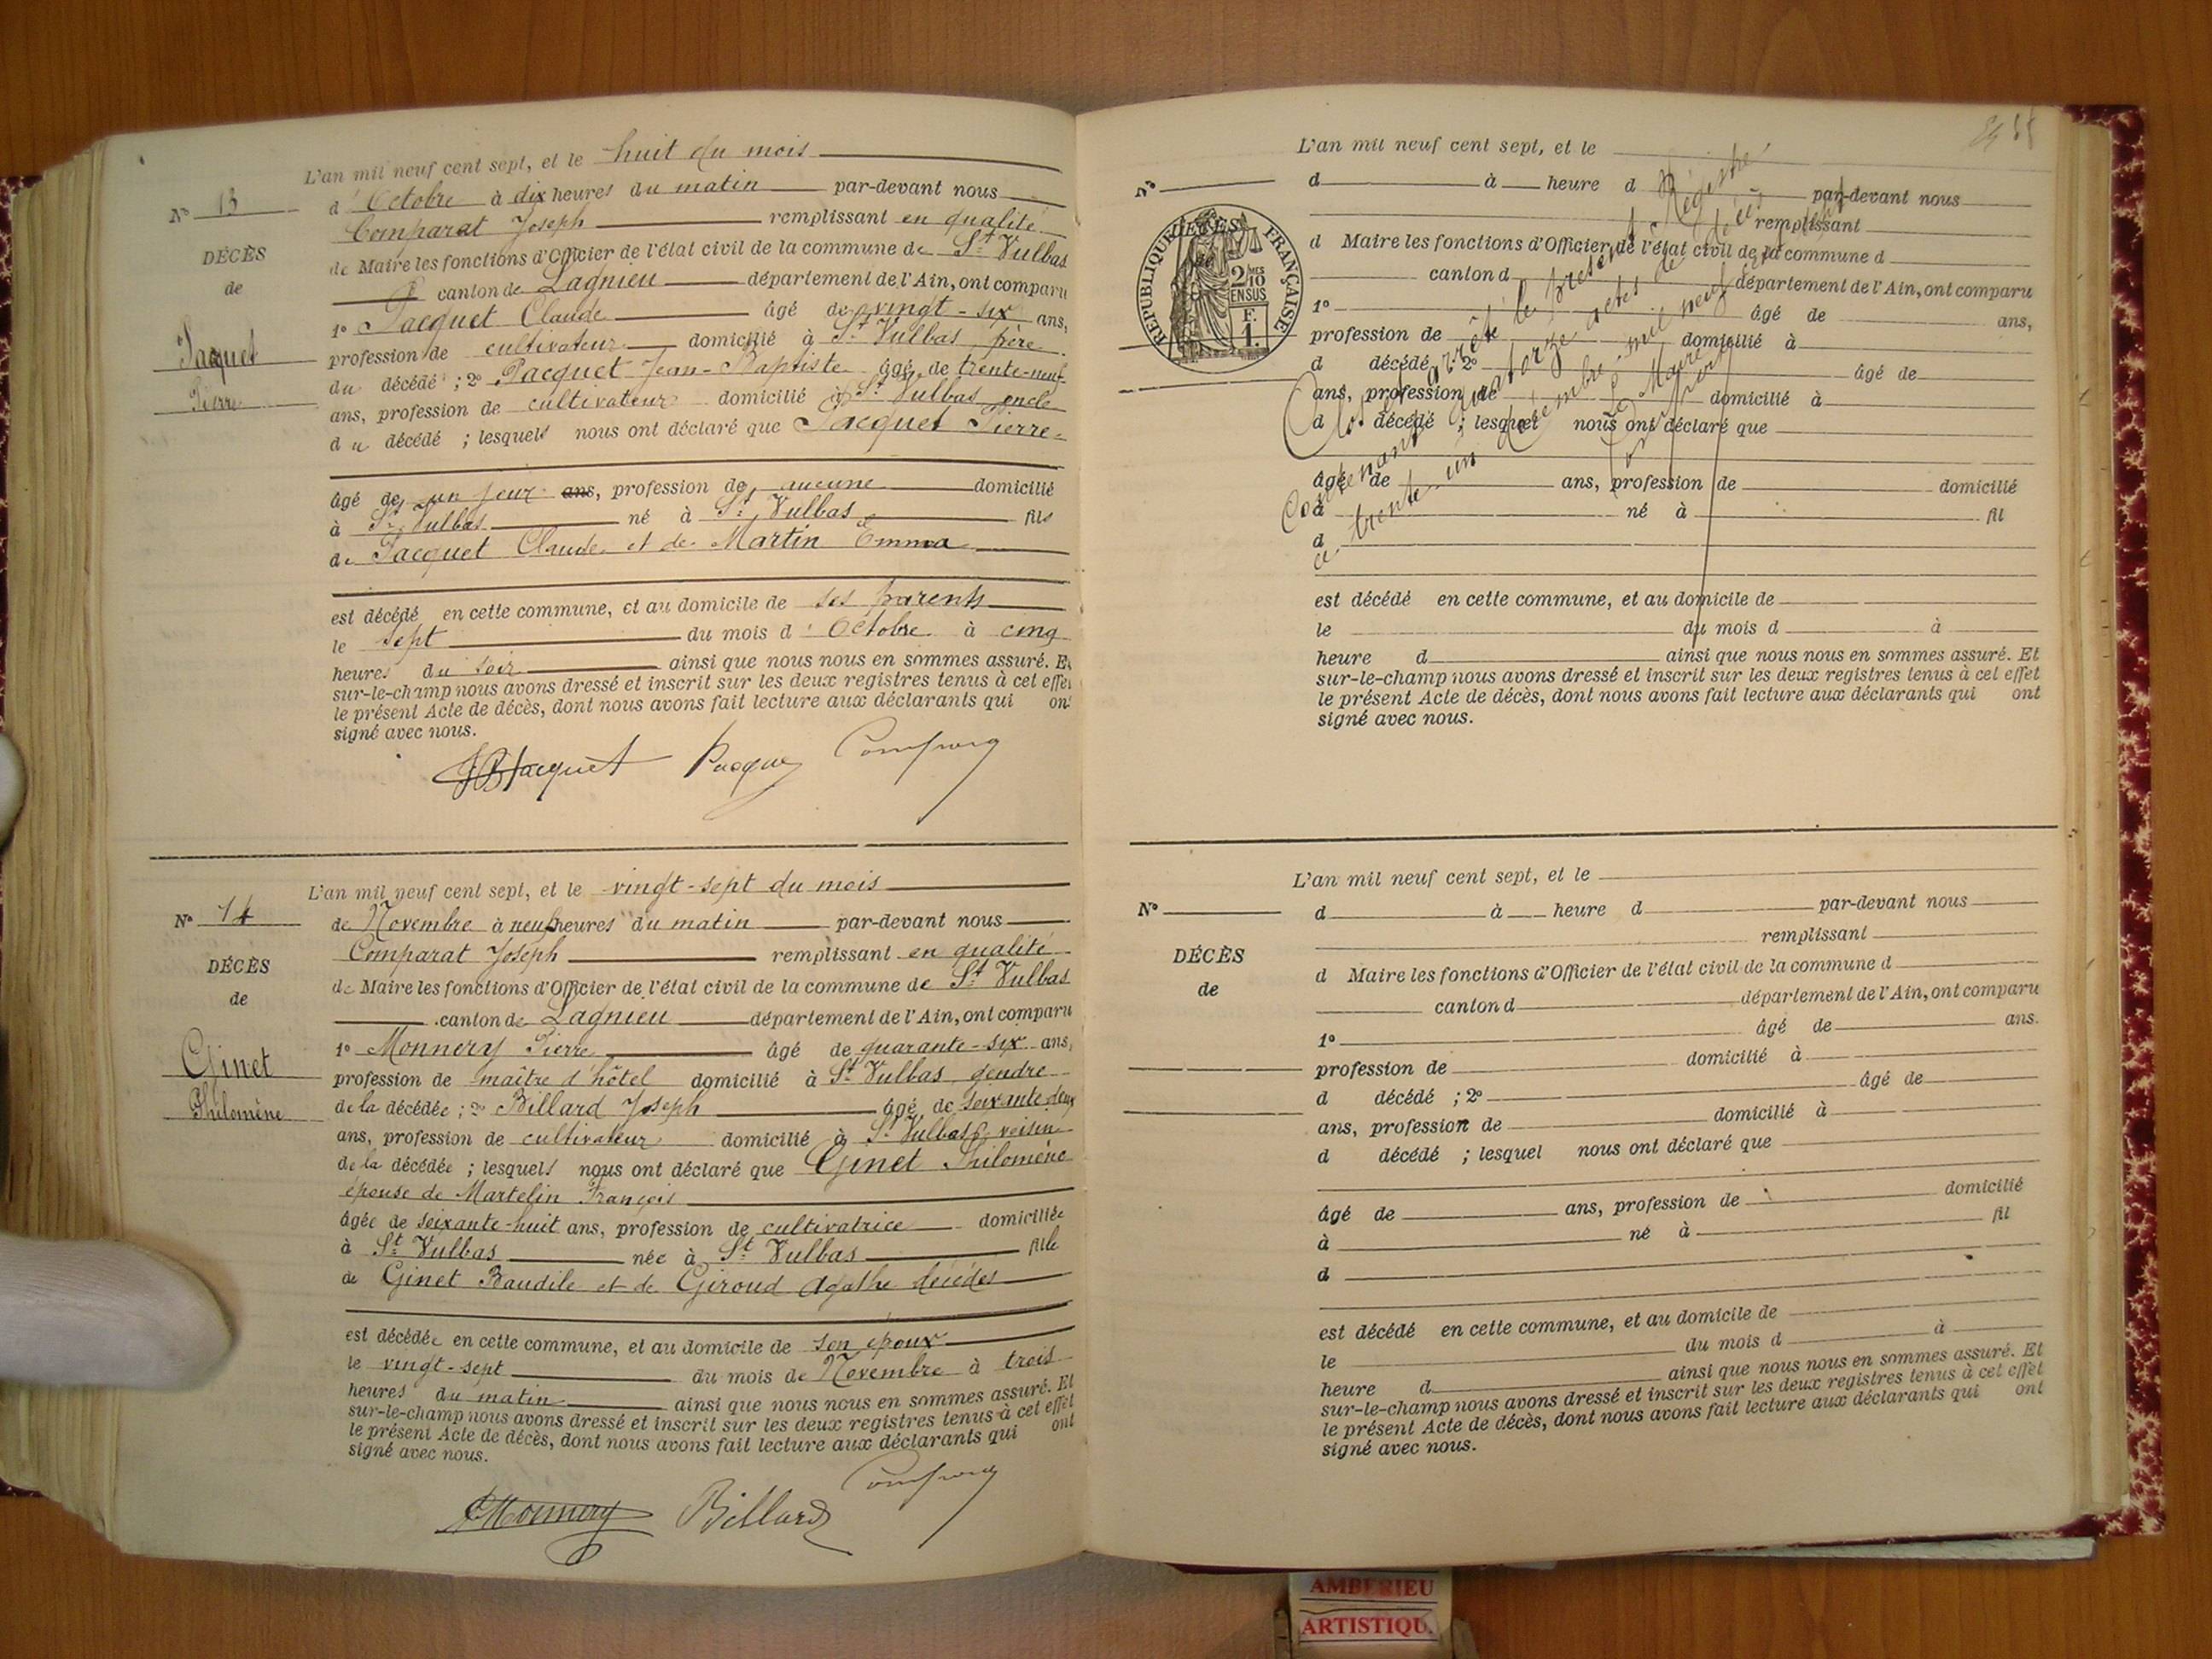 L'an mil neuf cent sept, et le huit du mois
N° 13
d'Octobre à dix heures du matin par-devant nous
Comparat Joseph remplissant en qualité
DÉCÈS
de Maire les fonctions d'Officier de l'état civil de la commune de St Vulbas
de
canton de Lagnieu département de l'Ain, ont comparu
1° Jacquet Claude âgé de vingt-six ans,
Jacquet
profession de cultivateur domicilié à St Vulbas père
du décédé ; 2° Jacquet Jean-Baptiste âgé de trente-neuf
Pierre
ans, profession de cultivateur domicilié à St Vulbas oncle
du décédé ; lesquels nous ont déclaré que Jacquet Pierre
âgé de un jour ans, profession de aucune domicilié
à St Vulbas né à St Vulbas fils
de Jacquet Claude et de Martin Emma
est décédé en cette commune, et au domicile de ses parents
le sept du mois d'Octobre à cinq
heures du soir ainsi que nous nous en sommes assuré. Et
sur-le-champ nous avons dressé et inscrit sur les deux registres tenus à cet effet
le présent Acte de décès, dont nous avons fait lecture aux déclarants qui ont
signé avec nous.
JBJacquet Jacquet Comparat
L'an mil neuf cent sept, et le vingt-sept du mois
N° 14
de Novembre à neuf heures du matin par-devant nous
Comparat Joseph remplissant en qualité
DÉCÈS
de Maire les fonctions d'Officier de l'état civil de la commune de St Vulbas
de
canton de Lagnieu département de l'Ain, ont comparu
1° Monnery Pierre âgé de quarante-six ans,
Ginet
profession de maître d'hôtel domicilié à St Vulbas gendre
Philomène
de la décédée ; 2° Billard Joseph âgé de soixante-deux
ans, profession de cultivateur domicilié à St Vulbas voisin
de la décédée ; lesquels nous ont déclaré que Ginet Philomène
épouse de Martelin François
âgée de soixante-huit ans, profession de cultivatrice domiciliée
à St Vulbas née à St Vulbas fille
de Ginet Baudile et de Giroud Agathe décédés
est décédée en cette commune, et au domicile de son époux
le vingt-sept du mois de Novembre à trois
heures du matin ainsi que nous nous en sommes assuré. Et
sur-le-champ nous avons dressé et inscrit sur les deux registres tenus à cet effet
le présent Acte de décès, dont nous avons fait lecture aux déclarants qui ont
signé avec nous.
Monnery Billard Comparat
L'an mil neuf cent sept, et le
N°
d à heure d par-devant nous
remplissant
DÉCÈS
d Maire les fonctions d'Officier de l'état civil de la commune d
RÉPUBLIQUE FRANÇAISE
2/10
EN SUS
F.
1.
canton d département de l'Ain, ont comparu
1° âgé de ans,
profession de domicilié à
d décédé ; 2° âgé de
ans, profession de domicilié à
d décédé ; lesquel nous ont déclaré que
âgé de ans, profession de domicilié
à né à fil
d
est décédé en cette commune, et au domicile de
le du mois d à
heure d ainsi que nous nous en sommes assuré. Et
sur-le-champ nous avons dressé et inscrit sur les deux registres tenus à cet effet
le présent Acte de décès, dont nous avons fait lecture aux déclarants qui ont
signé avec nous.
Clos et arrêté le présent Registre
Contenant quatorze actes de décès
ce trente-un décembre mil neuf cent sept
Le Maire
Comparat
L'an mil neuf cent sept, et le
N°
d à heure d par-devant nous
remplissant
DÉCÈS
d Maire les fonctions d'Officier de l'état civil de la commune d
de
canton d département de l'Ain, ont comparu
1° âgé de ans.
profession de domicilié à
d décédé ; 2° âgé de
ans, profession de domicilié à
d décédé ; lesquel nous ont déclaré que
âgé de ans, profession de domicilié
à né à fil
d
est décédé en cette commune, et au domicile de
le du mois d à
heure d ainsi que nous nous en sommes assuré. Et
sur-le-champ nous avons dressé et inscrit sur les deux registres tenus à cet effet
le présent Acte de décès, dont nous avons fait lecture aux déclarants qui ont
signé avec nous.
AMBERIEU
ARTISTIQU